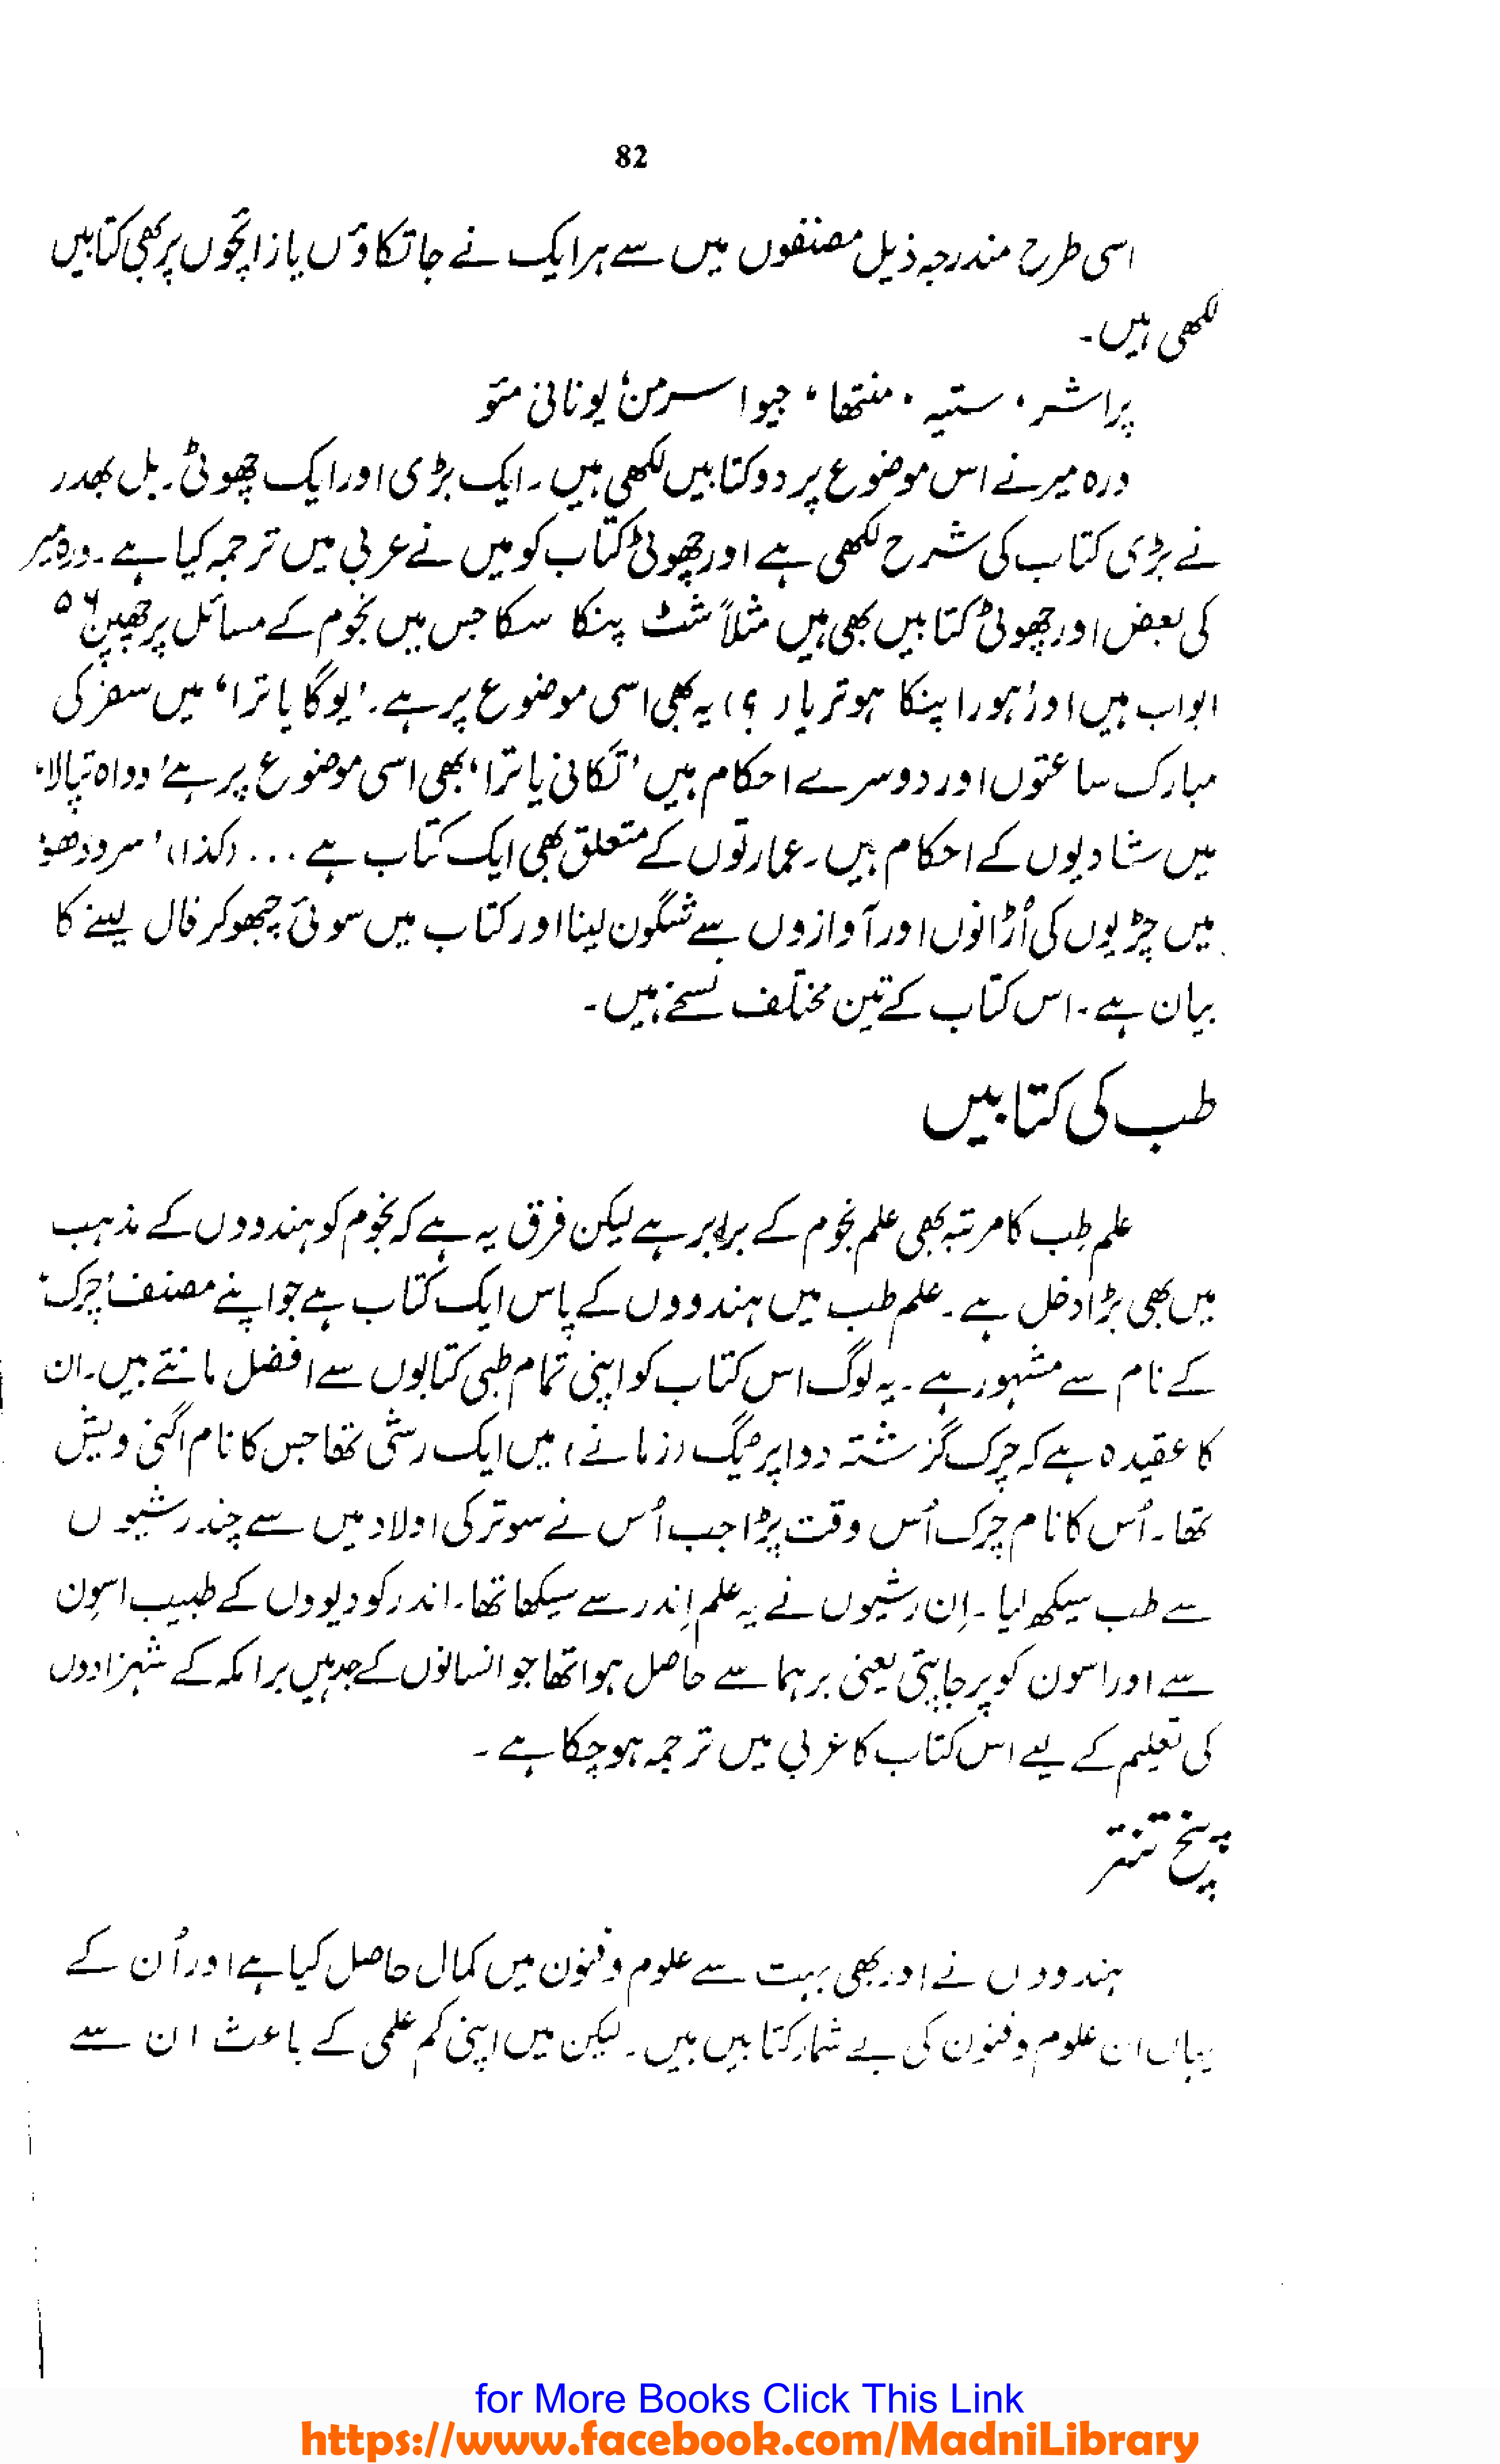 82
اسی طرح مندرجہ ذیل مصنفوں میں سے ہر ایک نے جاتکاؤں یا زائچوں پر بھی کتابیں
لکھی ہیں۔
پراشر، ستیہ، منتھا، جیوا سرمن، یونانی مئو
ورہ میر نے اس موضوع پر دو کتابیں لکھی ہیں۔ ایک بڑی اور ایک چھوٹی۔ بل بھدر
نے بڑی کتاب کی شرح لکھی ہے اور چھوٹی کتاب کو میں نے عربی میں ترجمہ کیا ہے۔ ورہ میر
کی بعض اور چھوٹی کتابیں بھی ہیں مثلاً شٹ پنکا سکا جس میں نجوم کے مسائل پر چھپن ۵۶
ابواب ہیں اور 'ہورا پنکا ہوتریا ( ؟ ) یہ بھی اسی موضوع پر ہے۔ 'یوگا یاترا' میں سفر کی
مبارک ساعتوں اور دوسرے احکام ہیں 'تکانی یاترا' بھی اسی موضوع پر ہے 'دواہ تپالا'
میں شادیوں کے احکام ہیں۔ عمارتوں کے متعلق بھی ایک کتاب ہے ... (کذا) 'سرودھو'
میں چڑیوں کی اُڑانوں اور آوازوں سے شگون لینا اور کتاب میں سوئی چبھو کر فال لینے کا
بیان ہے۔ اس کتاب کے تین مختلف نسخے ہیں۔
طب کی کتابیں
علم طب کا مرتبہ بھی علم نجوم کے برابر ہے لیکن فرق یہ ہے کہ نجوم کو ہندووں کے مذہب
میں بھی بڑا دخل ہے۔ علم طب میں ہندووں کے پاس ایک کتاب ہے جو اپنے مصنف 'چرک'
کے نام سے مشہور ہے۔ یہ لوگ اس کتاب کو اپنی تمام طبی کتابوں سے افضل مانتے ہیں۔ ان
کا عقیدہ ہے کہ چرک گزشتہ دواپر یگ (زمانے) میں ایک رشی تھا جس کا نام اگنی ویش
تھا۔ اُس کا نام چرک اُس وقت پڑا جب اُس نے سوتر کی اولاد میں سے چند رشیوں
سے طب سیکھ لیا۔ اِن رشیوں نے یہ علم اِندر سے سیکھا تھا۔ اندر کو دیووں کے طبیب اسون
سے اور اسون کو پرجاپتی یعنی برہما سے حاصل ہوا تھا جو انسانوں کے جد ہیں برامکہ کے شہزادوں
کی تعلیم کے لیے اس کتاب کا عربی میں ترجمہ ہو چکا ہے۔
پنچ تنتر
ہندووں نے اور بھی بہت سے علوم و فنون میں کمال حاصل کیا ہے اور اُن کے
یہاں ان علوم و فنون کی بے شمار کتابیں ہیں۔ لیکن میں اپنی کم علمی کے باعث ان سے
for More Books Click This Link
https://www.facebook.com/MadniLibrary